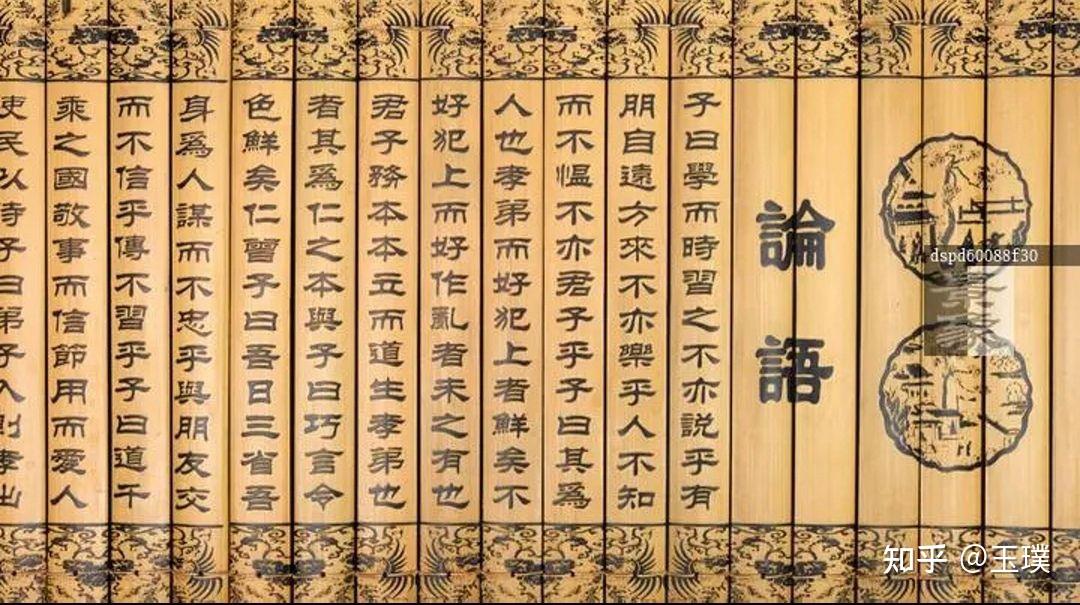 論語
子曰學而時習之不亦説乎有
朋自遠方來不亦樂乎人不知
而不愠不亦君子乎子曰其爲
人也孝弟而好犯上者鮮矣不
好犯上而好作亂者未之有也
君子務本本立而道生孝弟也
者其爲仁之本與子曰巧言令
色鮮矣仁曾子曰吾日三省吾
身爲人謀而不忠乎與朋友交
而不信乎傳不習乎子曰道千
乘之國敬事而信節用而愛人
使民以時子曰弟子入則孝出
dspd60088f30
知乎 @玉璞